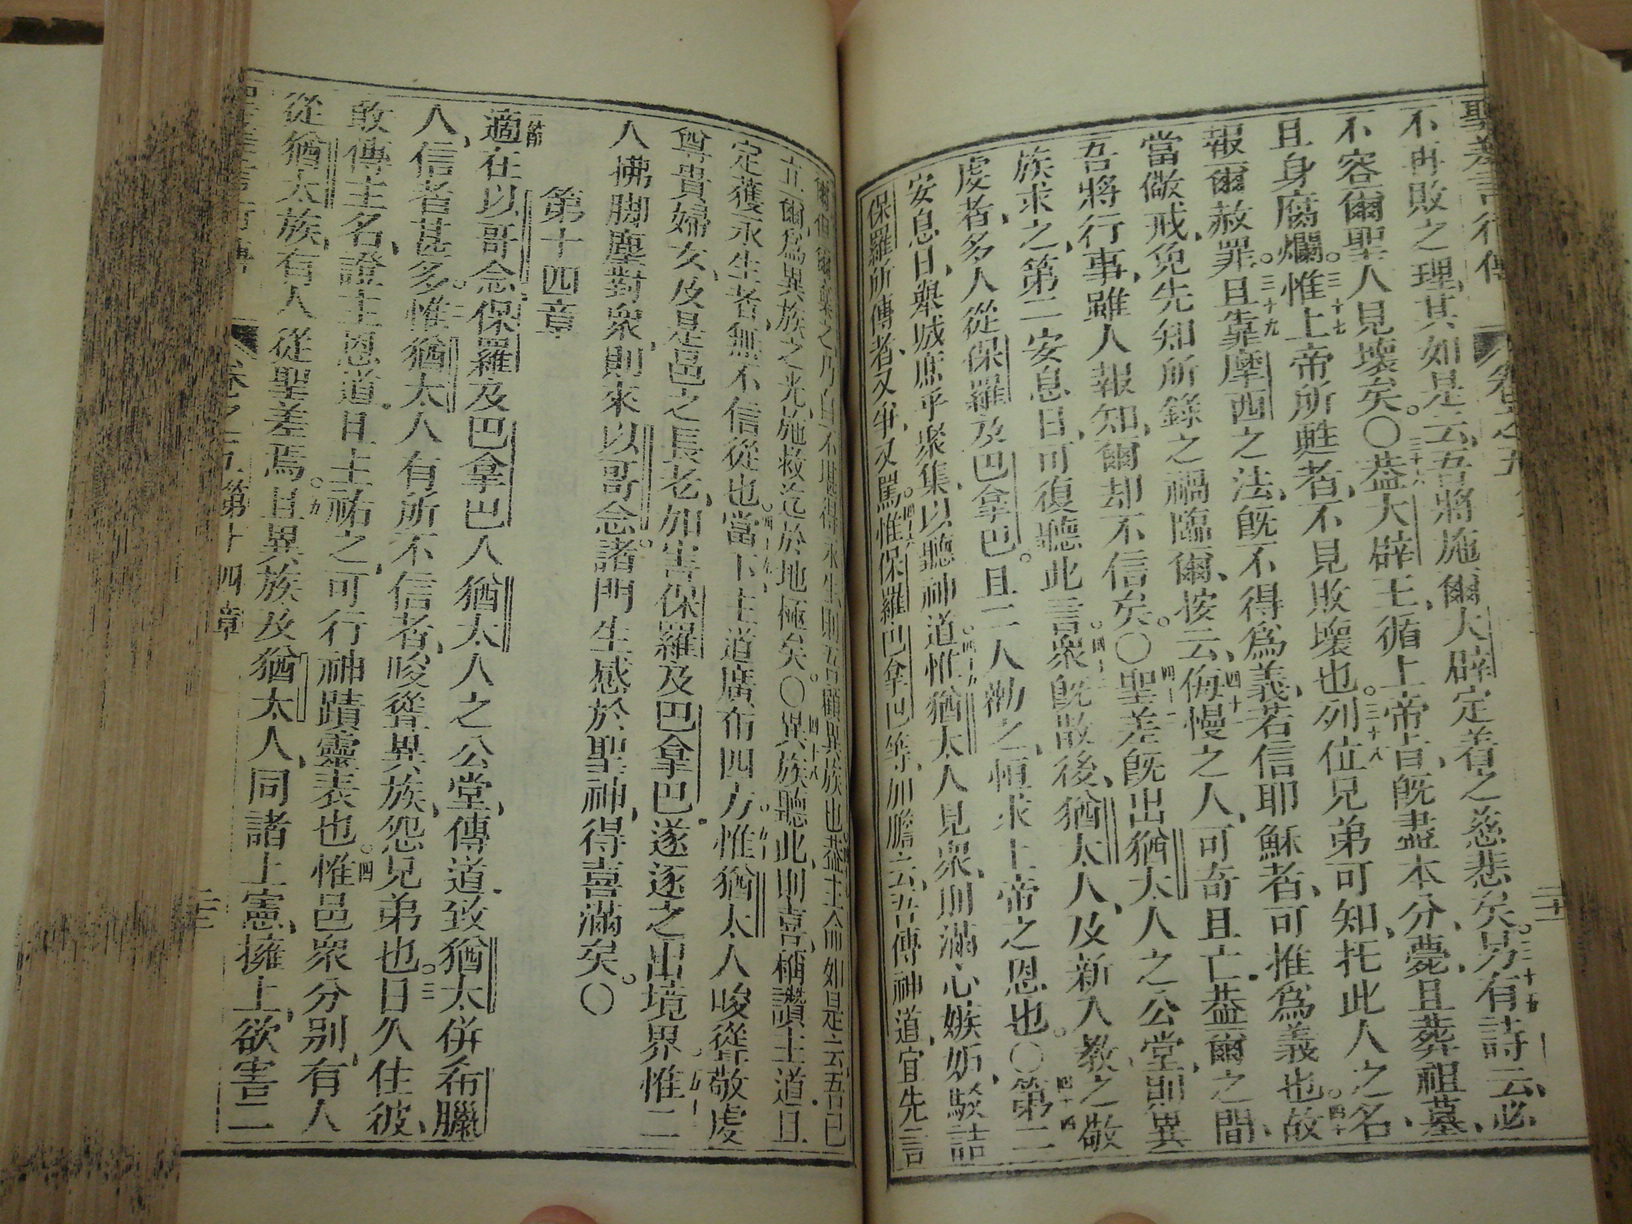 聖差言行傳 卷之五
不再敗之理其如是云吾將施爾大辟定着之慈悲矣三十五另有詩云必
不容爾聖人見壞矣○三十六蓋大辟王循上帝旨既盡本分薨且葬祖墓
且身腐爛三十七惟上帝所甦者不見敗壞也三十八列位兄弟可知托此人之名
報爾赦罪三十九且靠摩西之法既不得為義若信耶穌者可推為義也四十故
當儆戒免先知所錄之禍臨爾按云四十一侮慢之人可奇且亡蓋爾之間
吾將行事雖人報知爾却不信矣○四十二聖差既出猶太人之公堂則異
族求之第二安息日可復聽此言四十三衆既散後猶太人及新入教之敬
虔者多人從保羅及巴拿巴且二人勸之恒求上帝之恩也○四十四第二
安息日舉城庶乎衆集以聽神道四十五惟猶太人見衆則滿心嫉妬駁詰
保羅所傳者又爭又罵四十六惟保羅巴拿巴等加膽云吾傳神道宜先言
爾惟爾棄之乃自不堪得永生則吾顧異族也四十七蓋主命如是云吾已
立爾為異族之光施救迄於地極矣○四十八異族聽此則喜稱讚主道且
定獲永生者無不信從也四十九當下主道廣布四方五十惟猶太人唆慫敬虔
尊貴婦女及是邑之長老加害保羅及巴拿巴遂逐之出境界五十一惟二
人拂脚塵對衆則來以哥念諸門生感於聖神得喜滿矣○
第十四章
一節適在以哥念保羅及巴拿巴入猶太人之公堂傳道致猶太併希臘
人信者甚多二惟猶太人有所不信者唆慫異族怨兄弟也三日久住彼
敢傳主名證主恩道且主祐之可行神蹟靈表也四惟邑衆分别有人
從猶太族有人從聖差焉五且異族及猶太人同諸上憲擁上欲害二
卷之五 第十四章 三十二